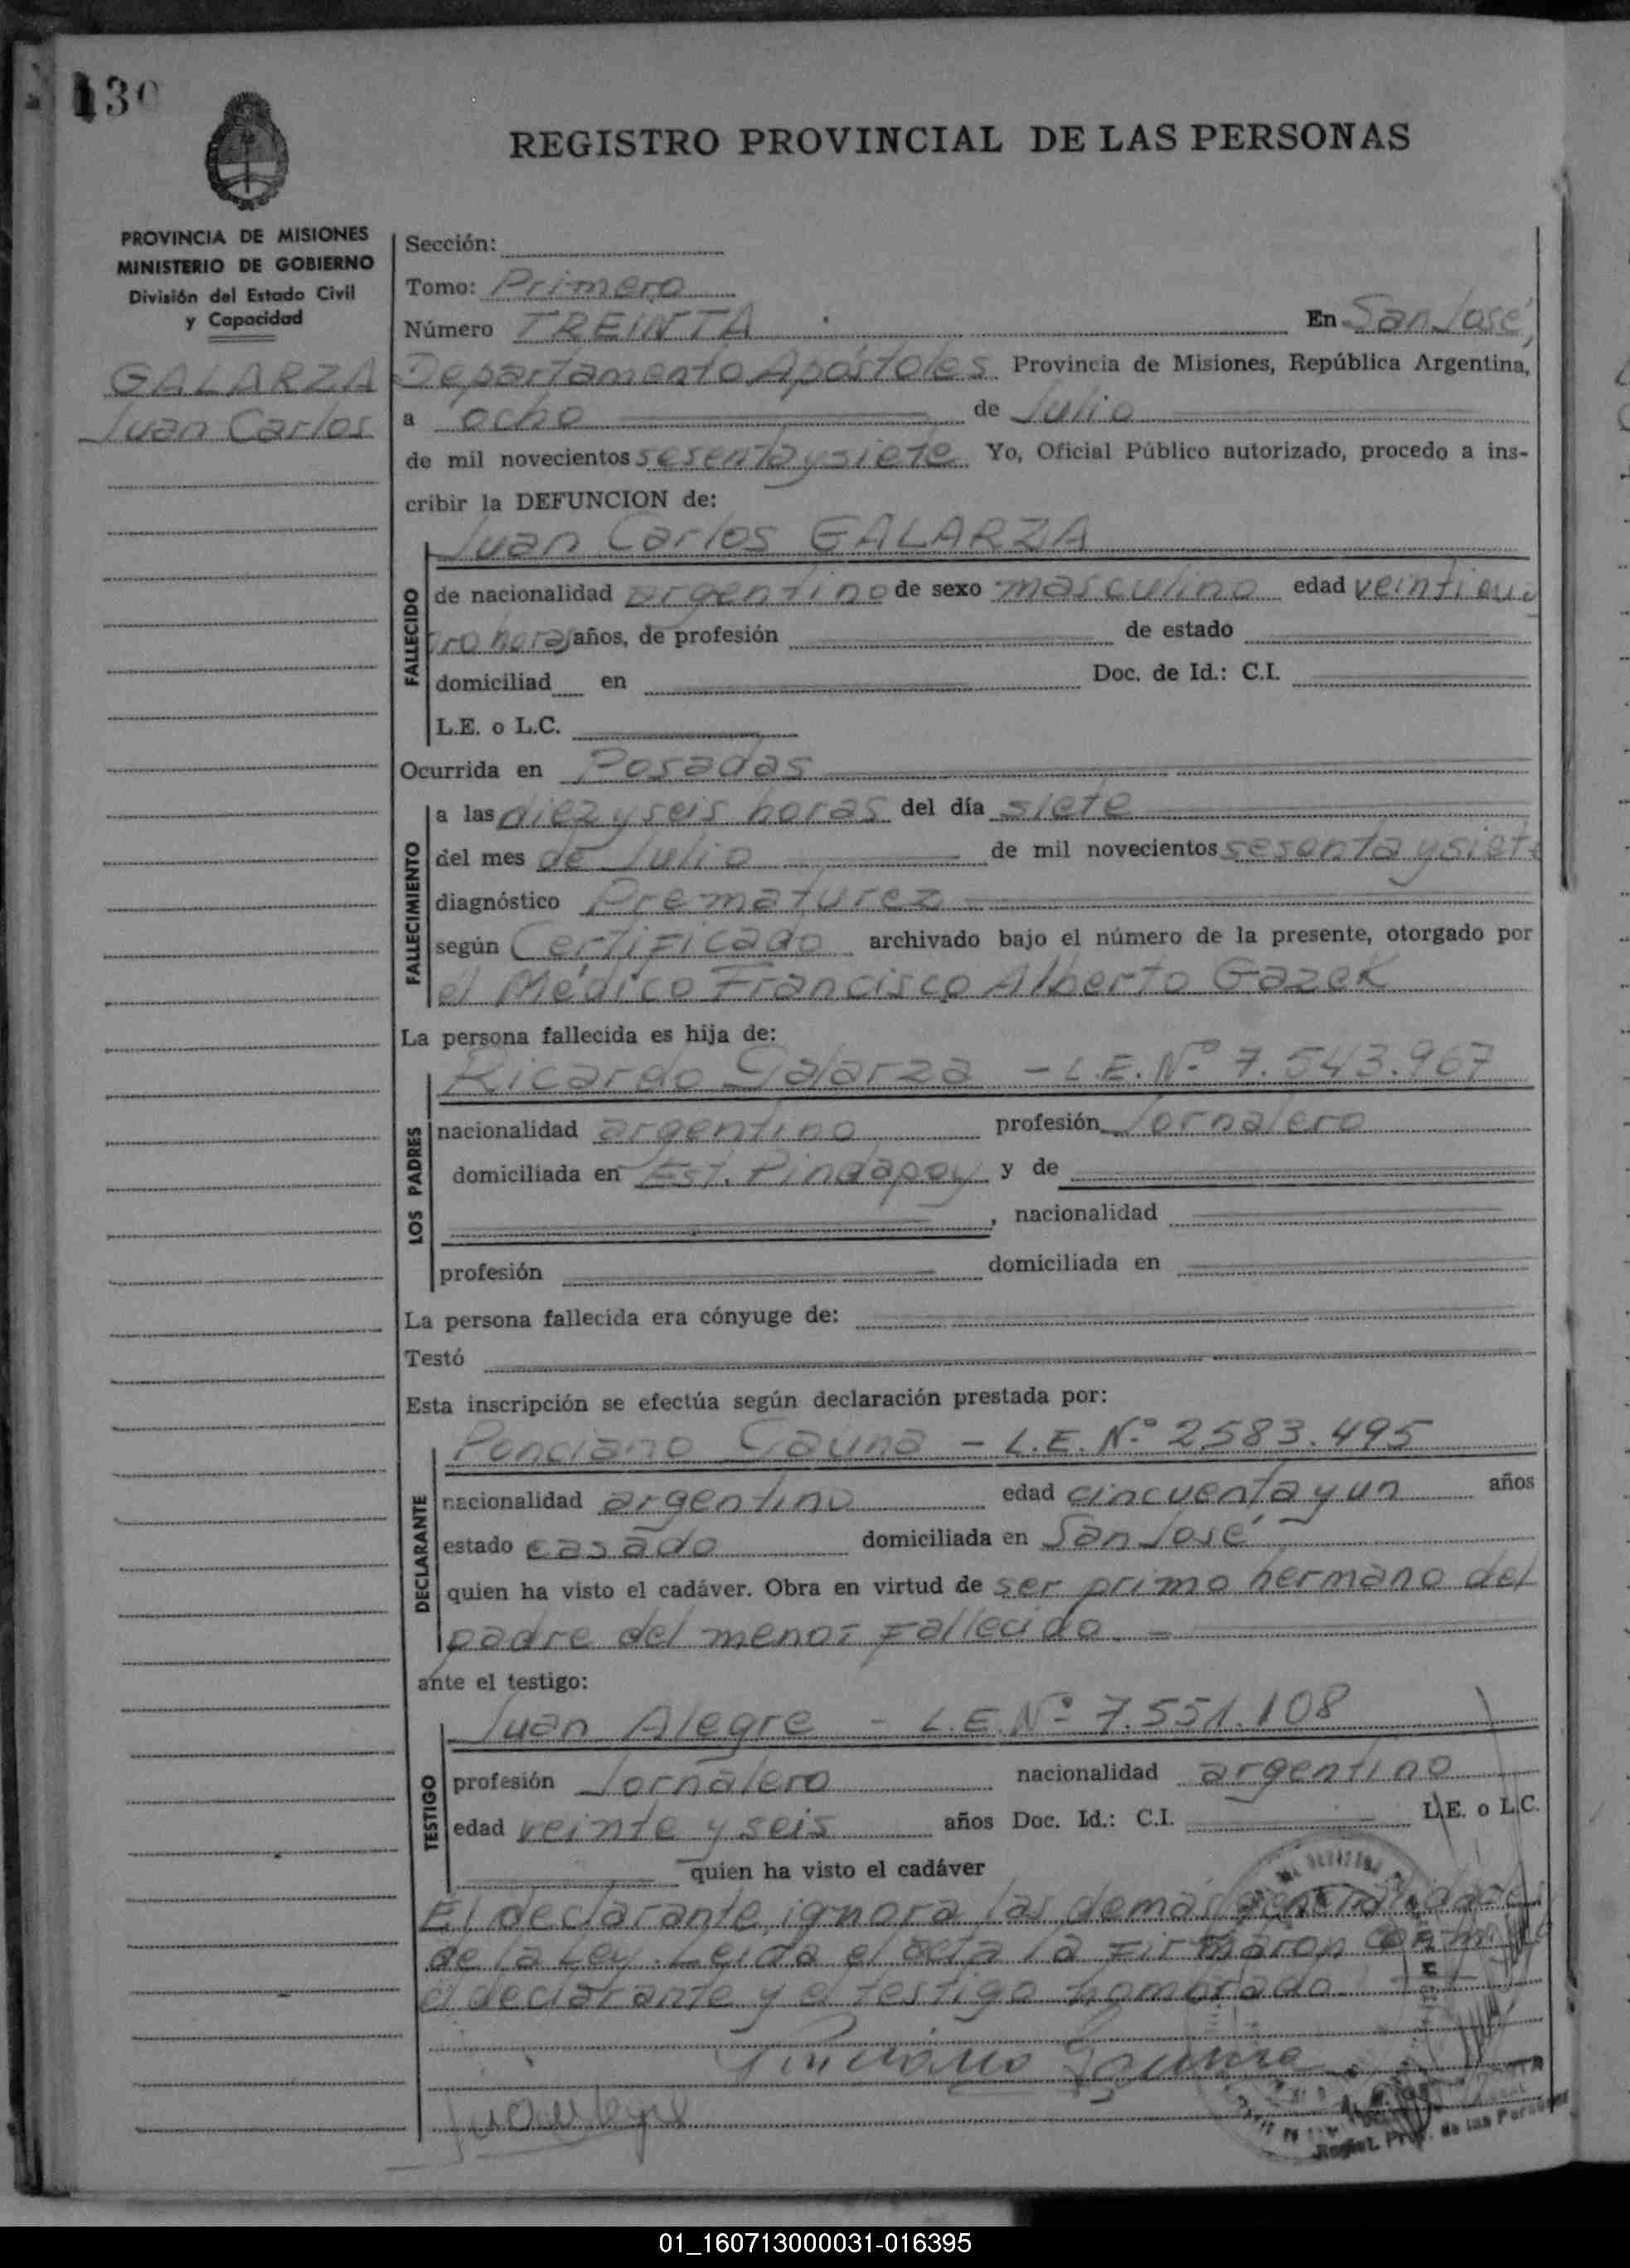 130
REGISTRO PROVINCIAL DE LAS PERSONAS
PROVINCIA DE MISIONES
MINISTERIO DE GOBIERNO
División del Estado Civil
y Capacidad
GALARZA
Juan Carlos
Sección:
Tomo: Primero
Número TREINTA En San José,
Departamento Apóstoles Provincia de Misiones, República Argentina,
a ocho de Julio
de mil novecientos sesenta y siete Yo, Oficial Público autorizado, procedo a ins-
cribir la DEFUNCION de:
Juan Carlos GALARZA
FALLECIDO
de nacionalidad argentino de sexo masculino edad veinticua
tro horas años, de profesión de estado
domiciliad en Doc. de Id.: C.I.
L.E. o L.C.
Ocurrida en Posadas
FALLECIMIENTO
a las diez y seis horas del día siete
del mes de Julio de mil novecientos sesenta y siete
diagnóstico Prematurez
según Certificado archivado bajo el número de la presente, otorgado por
el Médico Francisco Alberto Gazek
La persona fallecida es hija de:
LOS PADRES
Ricardo Galarza - L.E. Nº 7.543.967
nacionalidad argentino profesión Jornalero
domiciliada en Est. Pindapoy y de
, nacionalidad
profesión domiciliada en
La persona fallecida era cónyuge de:
Testó
Esta inscripción se efectúa según declaración prestada por:
DECLARANTE
Ponciano Gauna - L.E. Nº 2583.495
nacionalidad argentino edad cincuenta y un años
estado casado domiciliada en San José
quien ha visto el cadáver. Obra en virtud de ser primo hermano del
padre del menor fallecido -
ante el testigo:
TESTIGO
Juan Alegre - L.E. Nº 7.551.108
profesión Jornalero nacionalidad argentino
edad veinte y seis años Doc. Id.: C.I. L.E. o L.C.
quien ha visto el cadáver
El declarante ignora las demás generalidades
de la Ley. Leída el acta la firmaron conmigo
el declarante y el testigo nombrado.
Ponciano Gauna
Juan Alegre
Regist. Prov. de las Personas
01_160713000031-016395